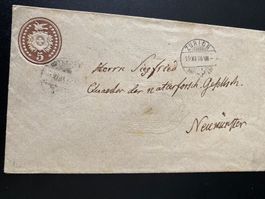 5
ZÜRICH
Herrn Siegfried
Quaestor der naturforsch. Gesellsch.
Neumünster